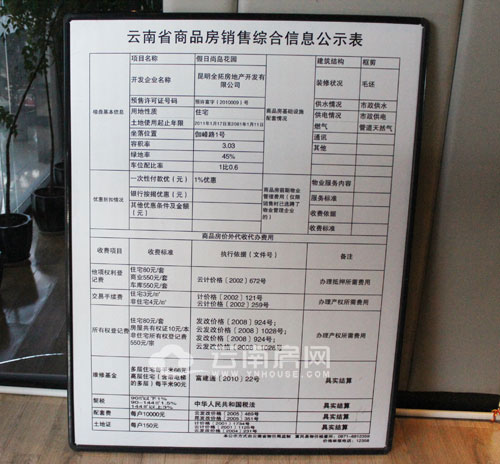 云南省商品房销售综合信息公示表
项目名称 假日尚品花园 建筑结构 框剪
开发企业名称 昆明全拓房地产开发有限公司 装修状况 毛坯
预售许可证号码 预许富字(2010009)号
楼盘基本信息 用地性质 住宅
商品房基础设施配套情况
供水情况 市政供水
供电情况 市政供电
燃气 管道天然气
通讯
其他
土地使用起止年限
坐落位置 伽峰路1号
容积率 3.03
绿地率 45%
车位配比率 1比0.6
优惠折扣情况
一次性付款优(元) 1%优惠
银行按揭优惠(元)
其他优惠条件及金额(元)
物业服务内容
服务标准
收费依据
收费标准
商品房价外代收代办费用
收费项目 收费标准 执行依据(文件号) 备注
他项权利登记费
住宅80元/套
商业550元/套
车库550元/套
云计价格〔2002〕672号 办理抵押所需费用
交易手续费
住宅3元/㎡
非住宅4元/㎡
计价格〔2002〕121号
云计价格〔2002〕259号
办理产权所需费用
所有权登记费
住宅80元/套
房屋共有权证10元/本
非住宅房屋登记费
550元/宗
发改价格〔2008〕924号;
云发改价格〔2008〕1028号;
发改价格〔2008〕924号;
办理产权所需费用
云南房网
WWW.YNHOUSE.COM
维修基金
富建通〔2010〕22号 真实结算
契税
中华人民共和国税法 真实结算
配套费 每户10000元 真实结算
土地证 每户150元 真实结算